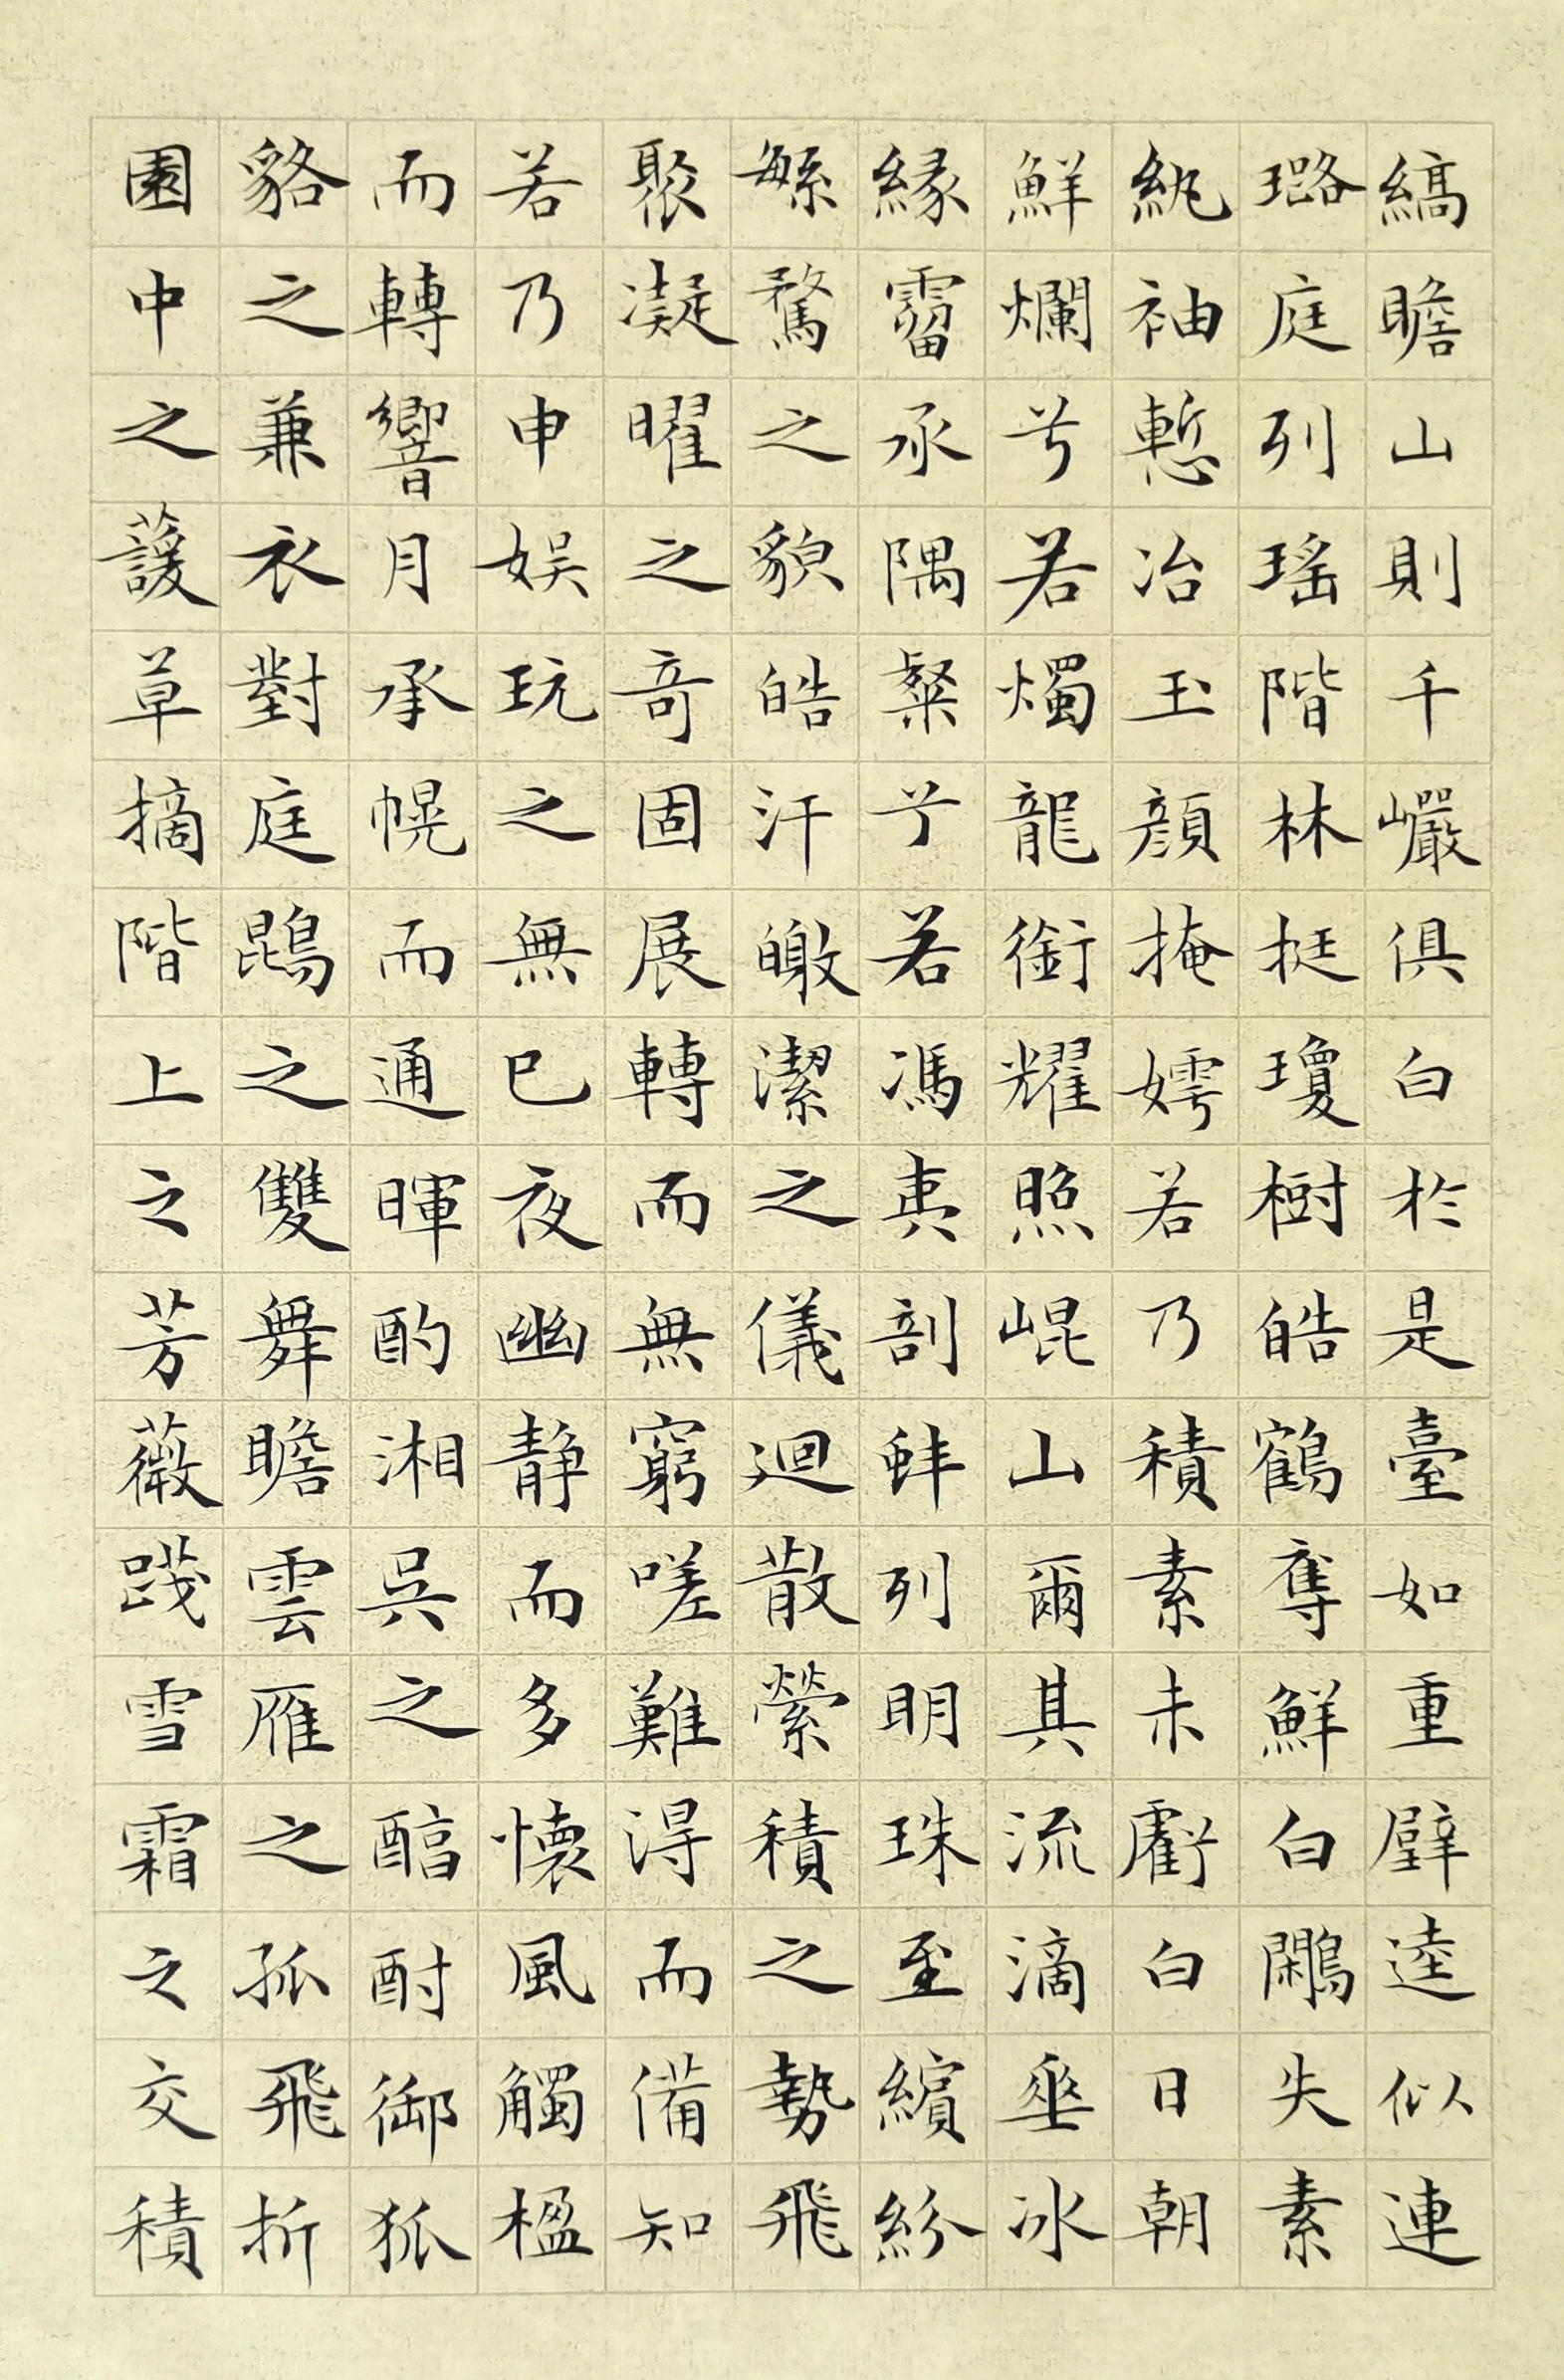 縞瞻山則千巖俱白於是臺如重璧逵似連
璐庭列瑤階林挺瓊樹皓鶴奪鮮白鷴失素
紈袖慙冶玉顏掩嫮若乃積素未虧白日朝
鮮爛兮若燭龍銜耀照崐山爾其流滴垂冰
緣霤承隅粲兮若馮夷剖蚌列明珠至繽紛
繁騖之貌皓汗皦潔之儀迴散縈積之勢飛
聚凝曜之奇固展轉而無窮嗟難得而備知
若乃申娛玩之無已夜幽静而多懷風觸楹
而轉響月承幌而通暉酌湘吳之醇酎御狐
貉之兼衣對庭鵾之雙舞瞻雲雁之孤飛折
園中之萲草摘階上之芳薇踐雪霜之交積